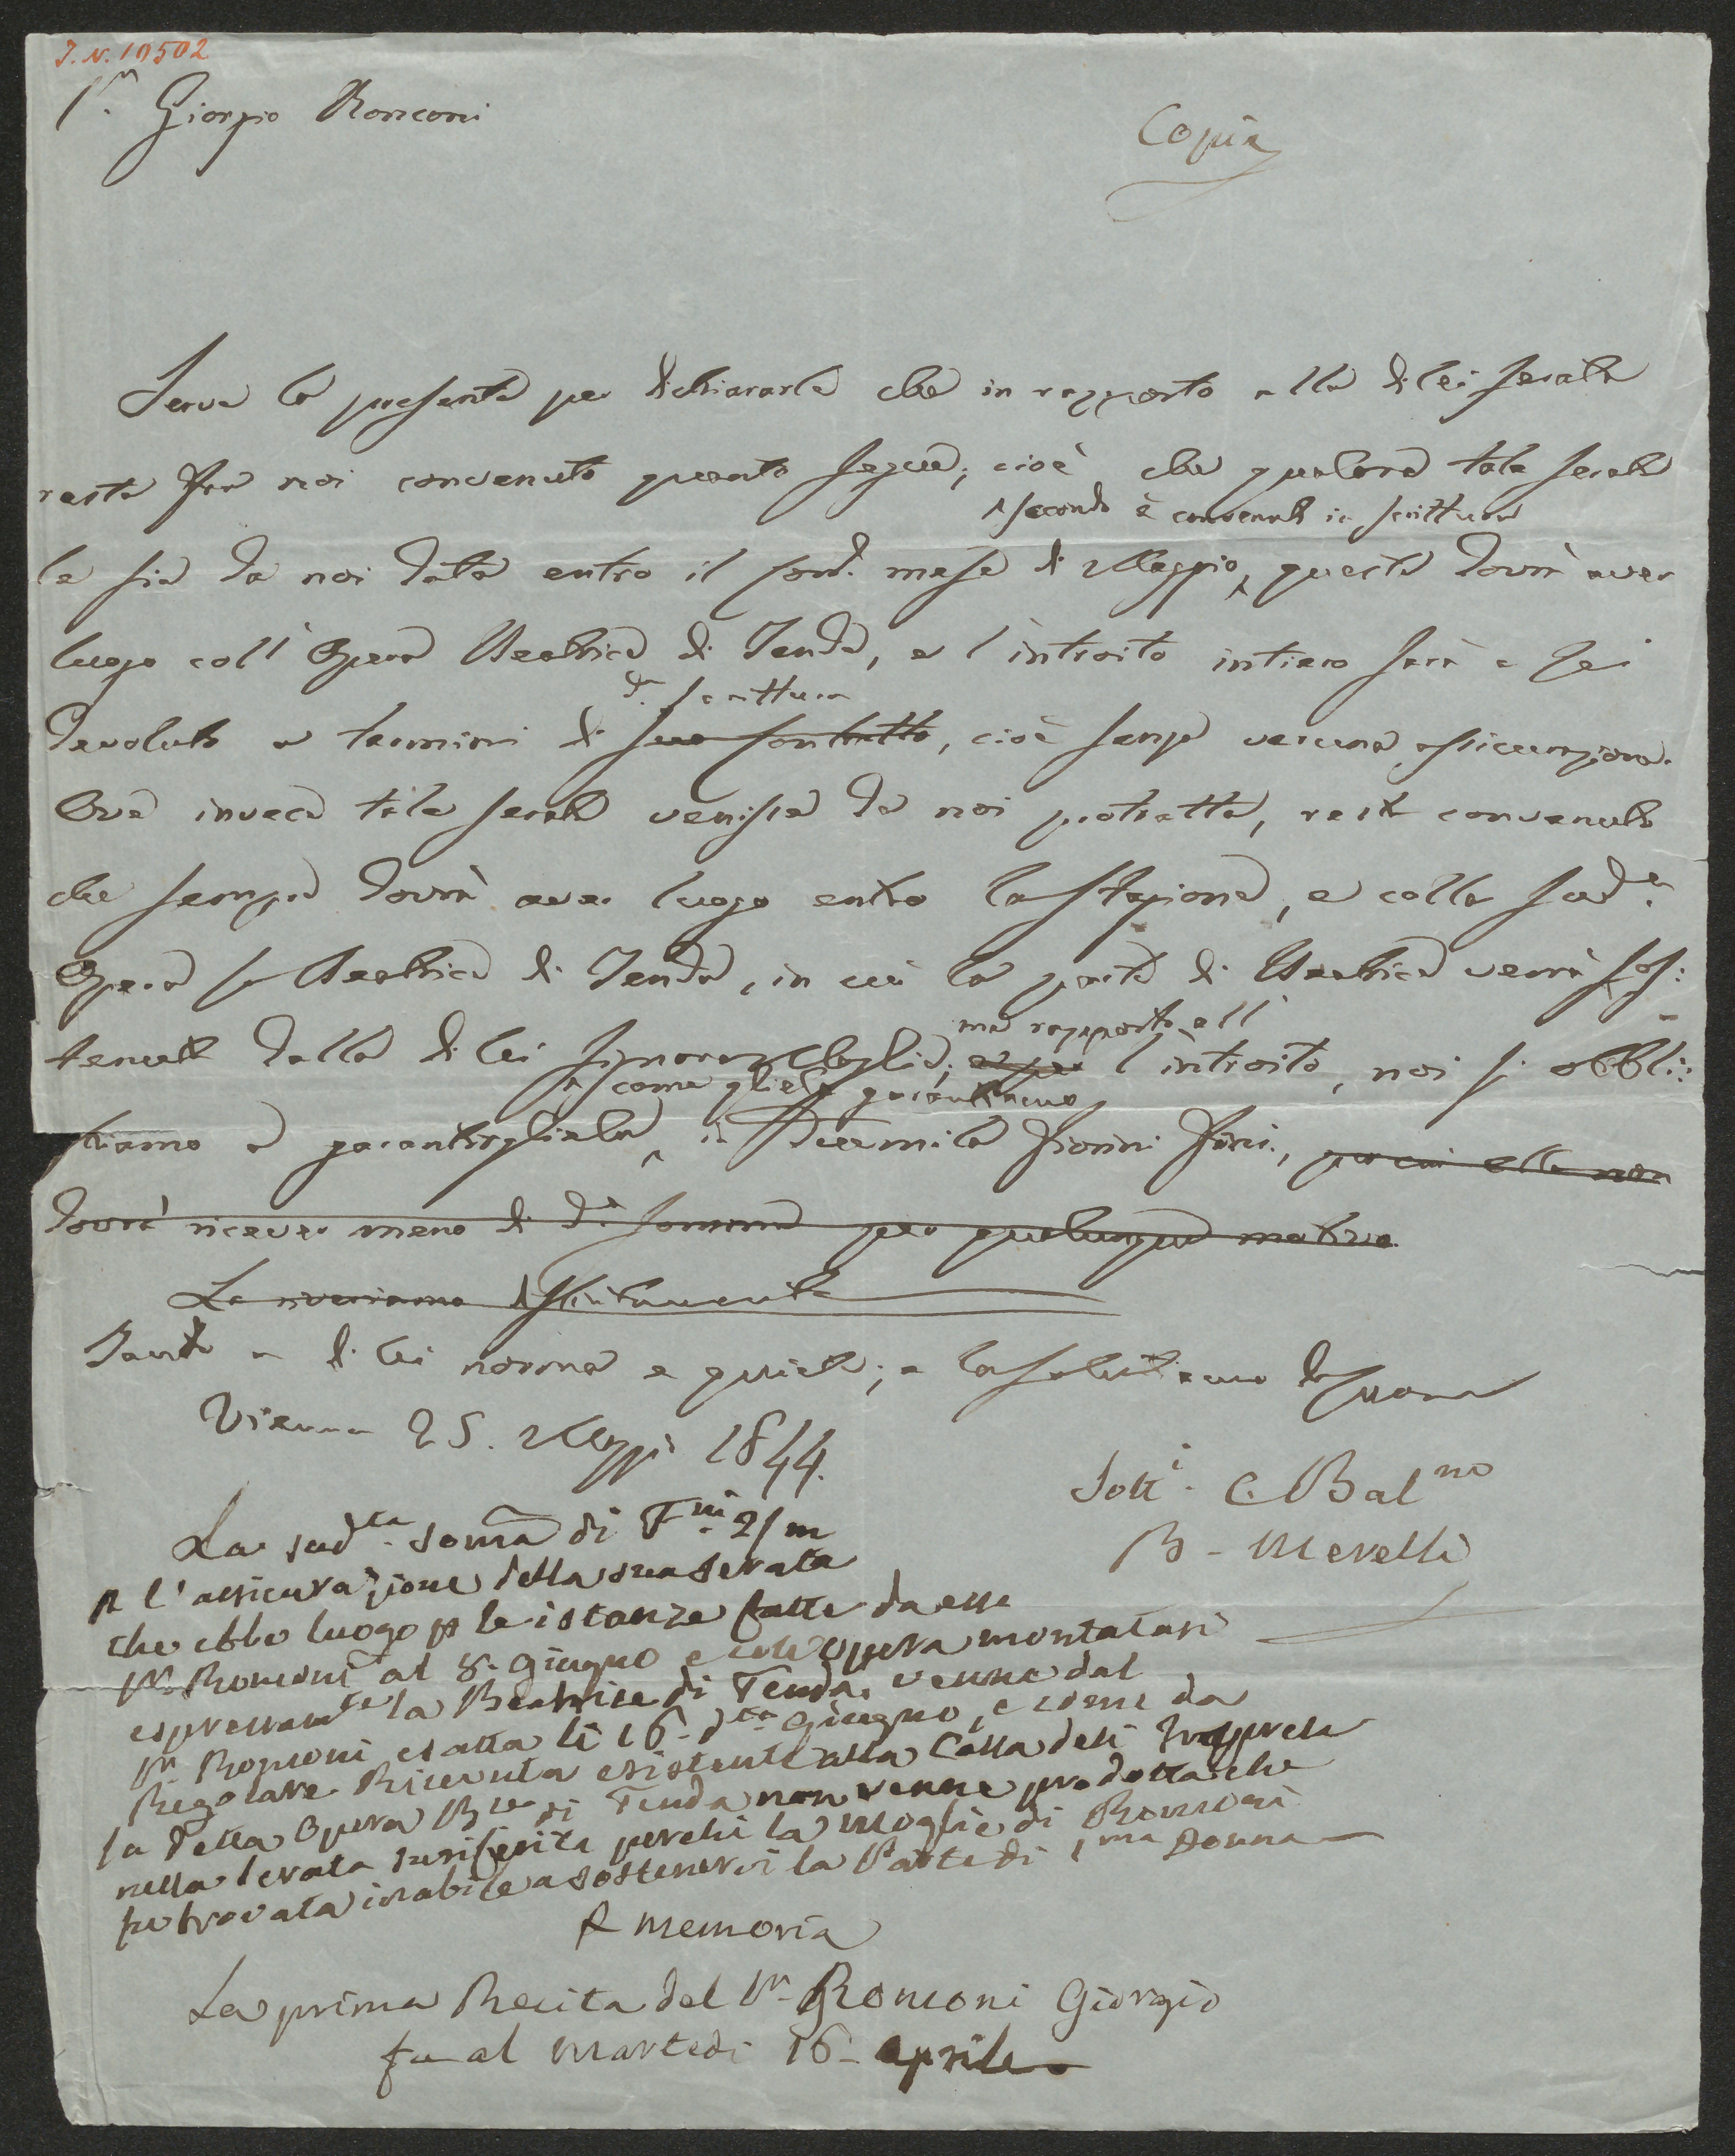 I. N. 10502
Sr. Giorgio Ronconi
Copia
Serve la presente per dichiararle che in rapporto alla di lei serata
resta fra noi convenuto quanto segue, cioè che qualora tale serata
secondo è convenuto in scrittura
le sia da noi data entro il corr. mese di Maggio, questa dovrà aver
luogo coll' Opera Beatrice di Tenda, e l'introito intiero sarà a Lei
da. scrittura
devoluto a termini di suo contratto, cioè senza veruna assicurazione.
Ove invece tale serata venisse da noi protratta, resta convenuto
che sempre dovrà aver luogo entro la Stagione, e colla sudda.
Opera la Beatrice di Tenda, in cui la parte di Beatrice verrà sos:
ma rapporto all'
tenuta dalla di lei Signora Moglie; e per l'introito, noi si obbli:
come glielo garantiamo
ghiamo a garantirglielo, in Duemila fiorini fini, per cui ella non
dovrà ricever meno di da. somma per qualunque motivo.
La riveriamo distintamente
Tanto a di lei norma e quiete; e la salutiamo
Vienna 25. Maggio 1844.
Sotti. C. Balno
B. Merelli
La sudta. soma di Fni. 2/m
p l'assicurazione della sua serata
che ebbe luogo p le istanze fatte da esso
Sr. Ronconi al 8. Giugno e coll'opera montatasi
espressamte la Beatrice di Tenda, venne dal
Sr. Ronconi esatta li 16. dto. Giugno, e come da
Regolare Ricevuta esistente alla Cassa dell' Impresa
la detta Opera Bce di Tenda non venne prodotta che
nella serata surriferita perchè la moglie di Ronconi
fu trovata inabile a sostenervi la Parte di 1ma Donna
P memoria
La prima Recita del Sr. Ronconi Giorgio
fu al Martedi 16. aprile